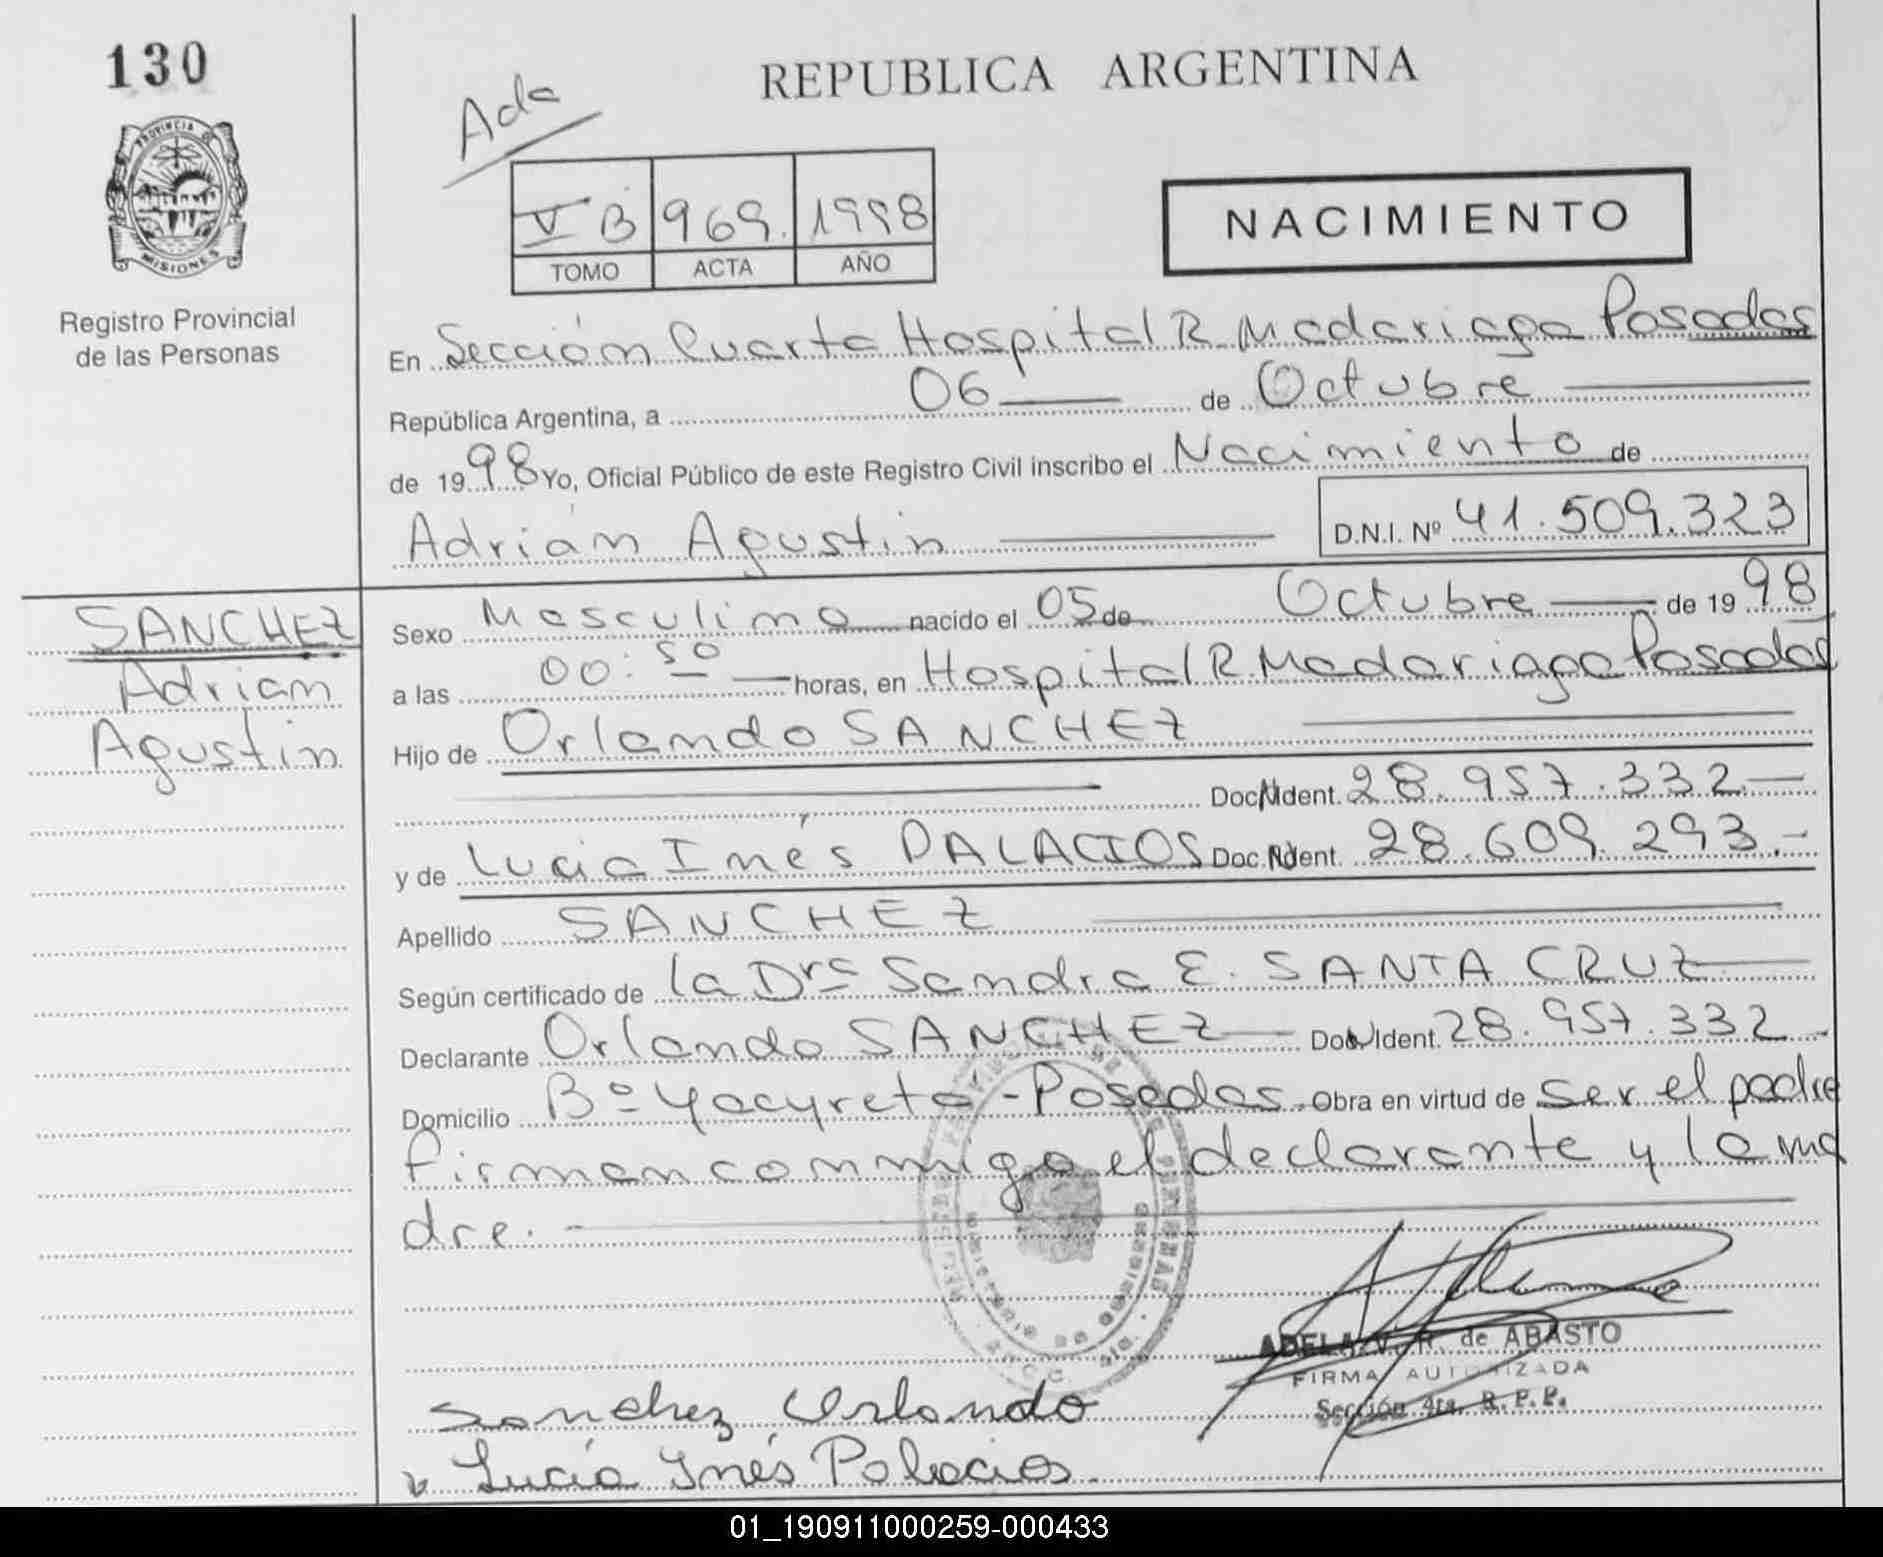 130
PROVINCIA DE
MISIONES
Registro Provincial
de las Personas
REPUBLICA ARGENTINA
Ada
V B 969. 1998
TOMO ACTA AÑO
NACIMIENTO
En Sección Cuarta Hospital R. Madariaga Posadas
República Argentina, a 06 de Octubre
de 1998 Yo, Oficial Público de este Registro Civil inscribo el Nacimiento de
Adrián Agustin D.N.I. Nº 41.509.323
SANCHEZ
Adrian
Agustin
Sexo Masculino nacido el 05 de Octubre de 1998
a las 00:50 horas, en Hospital R. Madariaga Posadas
Hijo de Orlando SANCHEZ
Doc. N. Ident. 28.957.332
y de Lucia Inés PALACIOS Doc. N. Ident. 28.609.293.-
Apellido SANCHEZ
Según certificado de la Dra Sandra E. SANTA CRUZ
Declarante Orlando SANCHEZ Doc. N. Ident. 28.957.332.-
Domicilio Bº Yacyretá - Posadas. Obra en virtud de ser el padre
firman conmigo el declarante y la ma
dre. -
ADELA V. R. de ABASTO
FIRMA AUTORIZADA
Sección 4ta. R. P. P.
Sanchez Orlando
Lucía Inés Palacios.
01_190911000259-000433